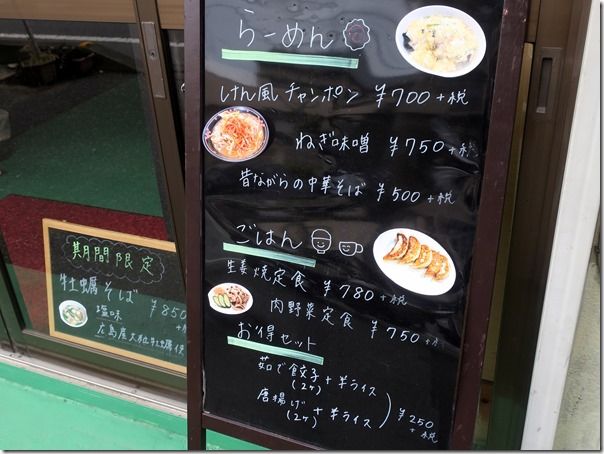 らーめん
けん風チャンポン ¥700+税
ねぎ味噌 ¥750+税
昔ながらの中華そば ¥500+税
ごはん
生姜焼定食 ¥780+税
肉野菜定食 ¥750+税
お得セット
茹で餃子(2ヶ)+半ライス
唐揚げ(2ヶ)+半ライス
¥250+税
期間限定
牡蠣そば ¥850+
塩味
広島産大粒牡蠣使